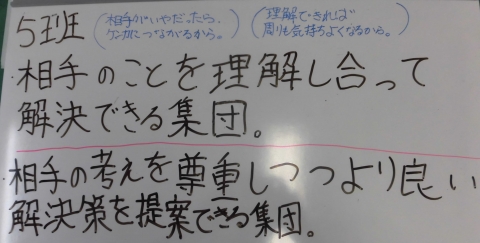 5班
(相手がいやだったら、
ケンカにつながるから。)
(理解できれば
周りも気持ちよくなるから。)
・相手のことを理解し合って
解決できる集団。
・相手の考えを尊重しつつより良い
解決策を提案できる集団。